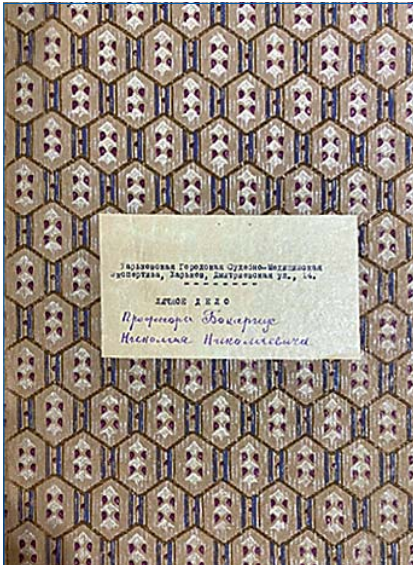 Харьковская Городская Судебно-Медицинская
Экспертиза, Харьков, Дмитриевская ул., 14.
ЛИЧНОЕ ДЕЛО
Профессора Бокариус
Николая Николаевича